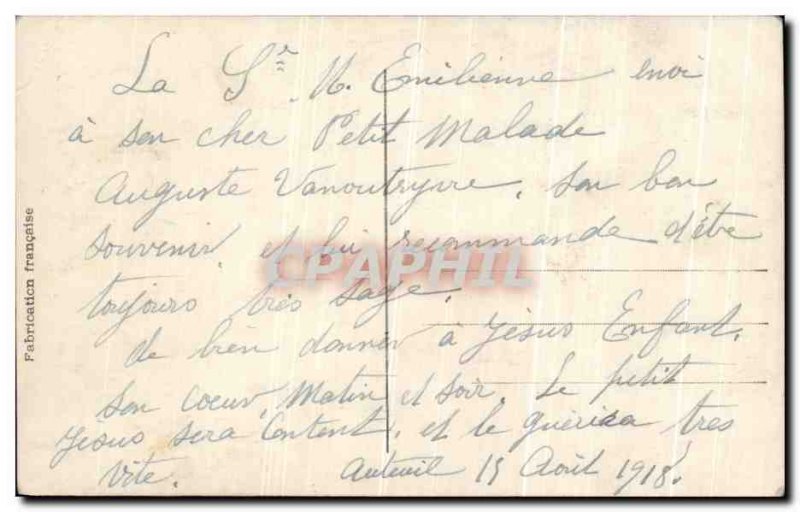 La Sr. M. Emilienne envoi
à son cher Petit Malade
Auguste Vanoutryve, son bon
souvenir, et lui recommande d'être
toujours très sage,
de bien donner à Jésus Enfant.
son coeur, Matin et soir. Le petit
Jésus sera Content, et le guérira tres
vite. Auteuil 15 Août 1918.
Fabrication française
CPAPHIL